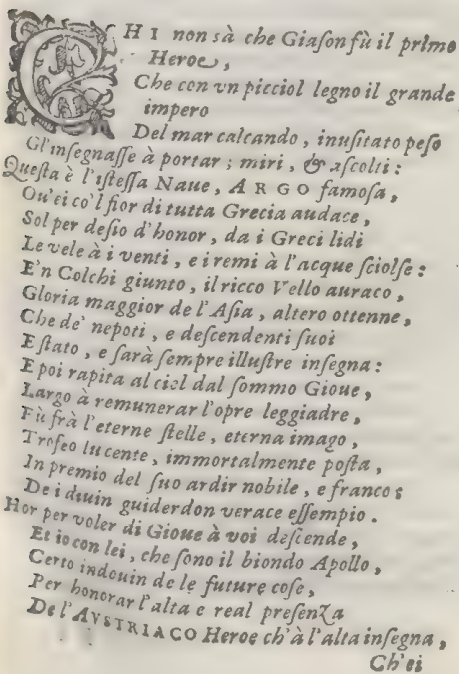 CHI non sà che Giaſon fù il primo
Heroe,
Che con vn picciol legno il grande
impero
Del mar calcando, inuſitato peſo
Gl'inſegnaſſe à portar; miri, & aſcolti:
Queſta è l'iſteſſa Naue, ARGO famoſa,
Ou'ei co'l fior di tutta Grecia audace,
Sol per deſio d'honor, da i Greci lidi
Le vele à i venti, e i remi à l'acque ſciolſe:
E'n Colchi giunto, il ricco Vello aurato,
Gloria maggior de l'Aſia, altero ottenne,
Che de' nepoti, e deſcendenti ſuoi
E ſtato, e ſarà ſempre illuſtre inſegna:
E poi rapita al ciel dal ſommo Gioue,
Largo à remunerar l'opre leggiadre,
Fù frà l'eterne ſtelle, eterna imago,
Trofeo lucente, immortalmente poſta,
In premio del ſuo ardir nobile, e franco:
De i diuin guiderdon verace eſſempio.
Hor per voler di Gioue à voi deſcende,
Et io con lei, che ſono il biondo Apollo,
Certo indouin de le future coſe,
Per honorar l'alta e real preſenza
De l'AVSTRIACO Heroe ch'à l'alta inſegna,
Ch'ei